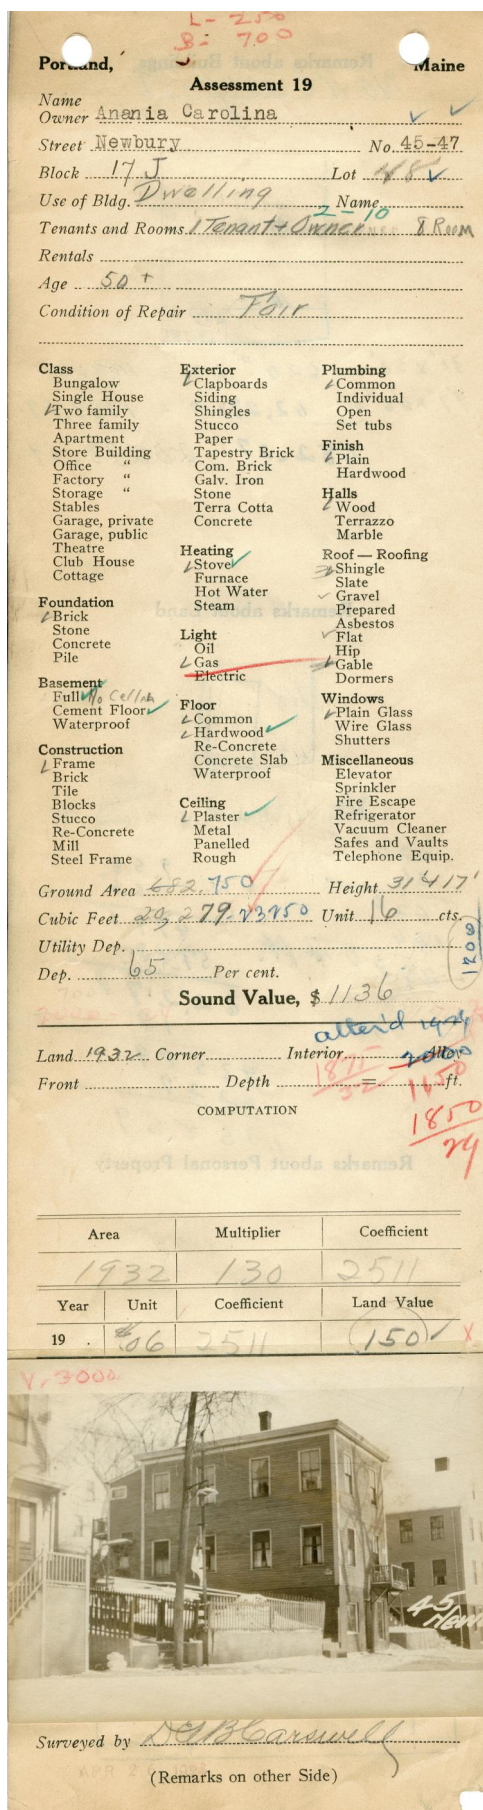 L - 250
B - 700
Portland, Maine
Assessment 19
Name
Owner Anania Carolina
Street Newbury No. 45-47
Block 17 J Lot 48
Use of Bldg. Dwelling Name
2-10
Tenants and Rooms 1 Tenant + Owner 8 Room
Rentals
Age 50 +
Condition of Repair Fair
Class
Bungalow
Single House
Two family
Three family
Apartment
Store Building
Office "
Factory "
Storage "
Stables
Garage, private
Garage, public
Theatre
Club House
Cottage
Foundation
Brick
Stone
Concrete
Pile
Basement
Full No Cellar
Cement Floor
Waterproof
Construction
Frame
Brick
Tile
Blocks
Stucco
Re-Concrete
Mill
Steel Frame
Exterior
Clapboards
Siding
Shingles
Stucco
Paper
Tapestry Brick
Com. Brick
Galv. Iron
Stone
Terra Cotta
Concrete
Heating
Stove
Furnace
Hot Water
Steam
Light
Oil
Gas
Electric
Floor
Common
Hardwood
Re-Concrete
Concrete Slab
Waterproof
Ceiling
Plaster
Metal
Panelled
Rough
Plumbing
Common
Individual
Open
Set tubs
Finish
Plain
Hardwood
Halls
Wood
Terrazzo
Marble
Roof — Roofing
Shingle
Slate
Gravel
Prepared
Asbestos
Flat
Hip
Gable
Dormers
Windows
Plain Glass
Wire Glass
Shutters
Miscellaneous
Elevator
Sprinkler
Fire Escape
Refrigerator
Vacuum Cleaner
Safes and Vaults
Telephone Equip.
Ground Area 682 750 Height 31'
Cubic Feet 20,279 23250 Unit 16 cts.
Utility Dep.
1200
Dep. 65 Per cent.
Sound Value, $ 1136
alter'd 1924
Land 1932 Corner Interior Alley 2000
Front Depth = ft.
1875
32
1650
1850
24
COMPUTATION
Remarks about Personal Property
Area Multiplier Coefficient
1932 130 2511
Year Unit Coefficient Land Value
19 . 06 2511 150
V. 3000
45
Surveyed by D G B Carswell
(Remarks on other Side)